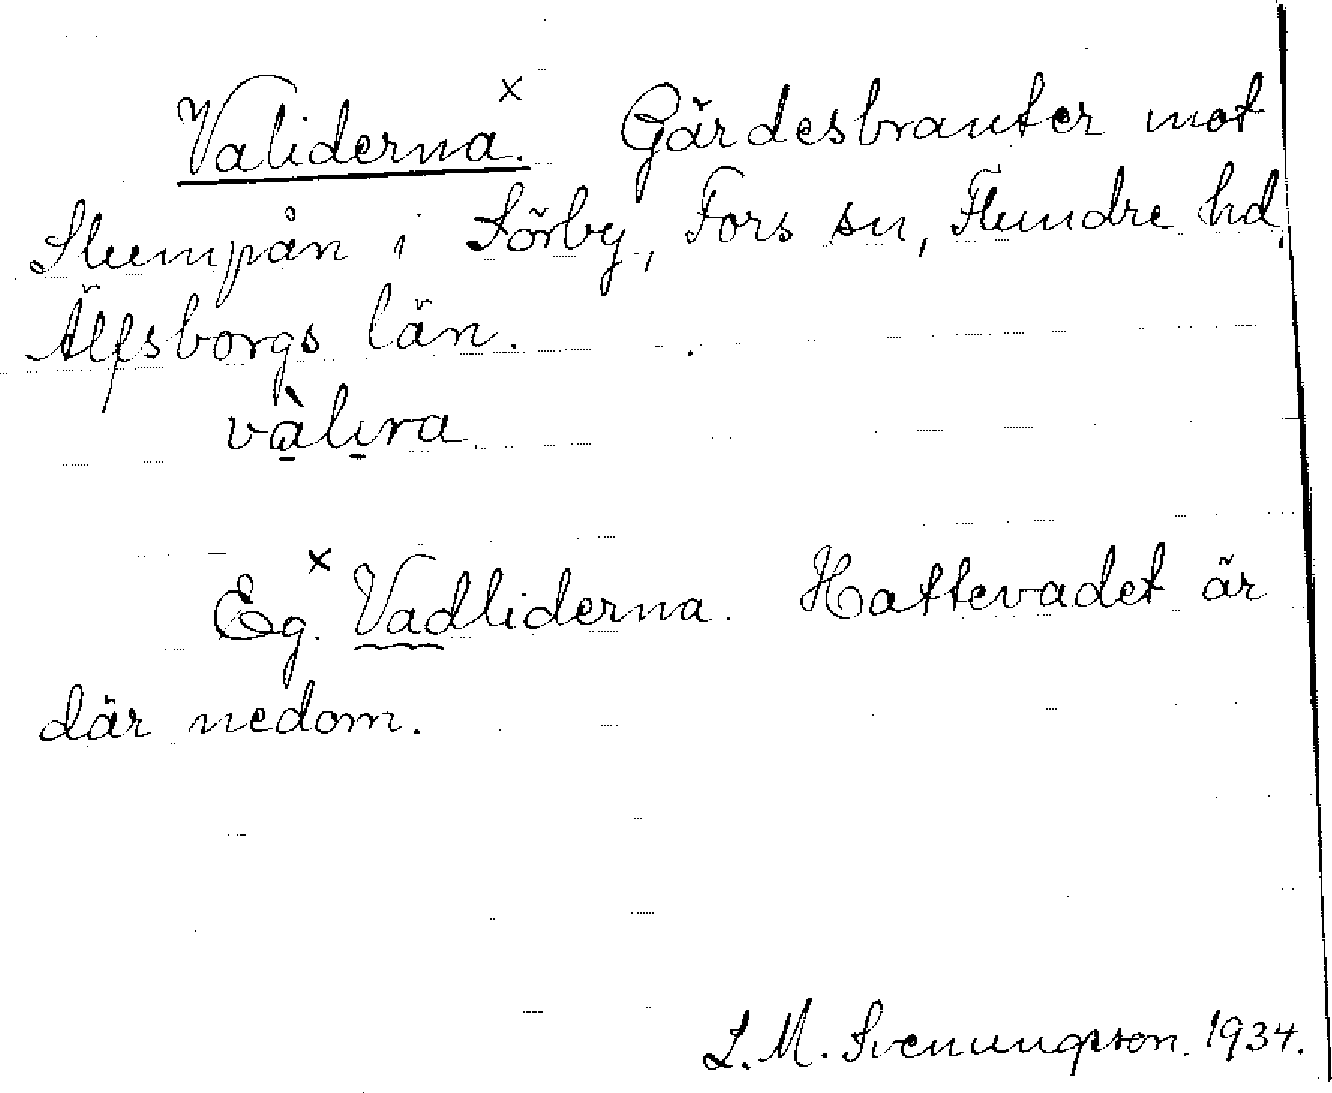 Validerna.ˣ Gärdesbranter mot
Slumpån i Sörby, Fors sn, Flundre hd,
Älfsborgs län.
và̱li̱ra
Eg. ˣVadliderna. Hattevadet är
där nedom.
L. M. Svenungsson. 1934.